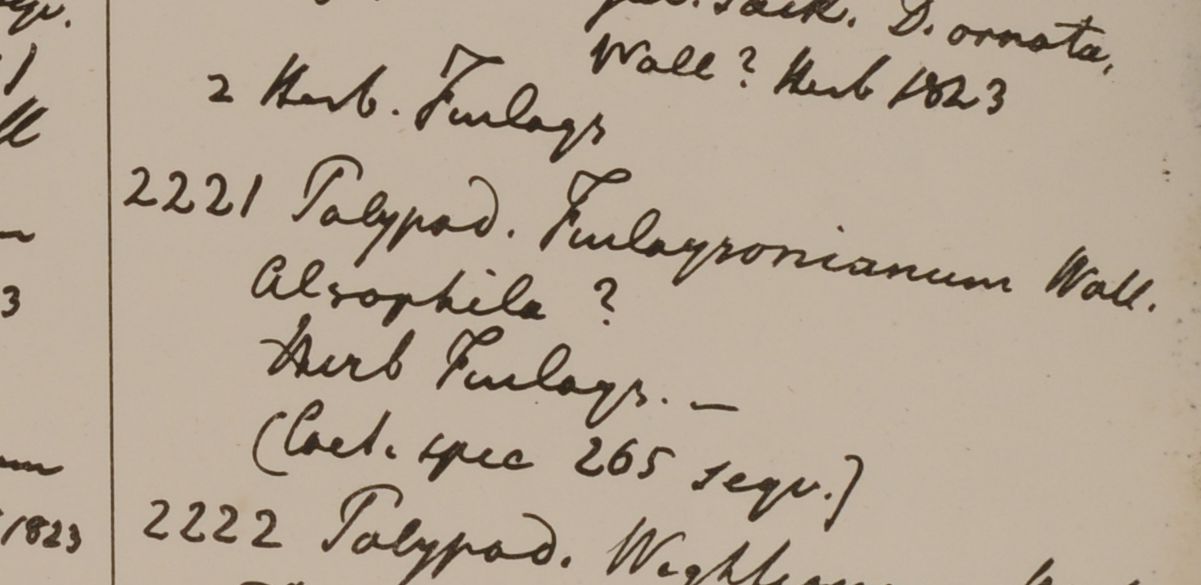 D. ornata,
Wall? Herb 1823
2 Herb. Finlays
2221 Polypod. Finlaysonianum Wall.
Alsophila ?
Herb Finlays. —
(Coet. spec 265 seqv.)
1823
2222 Polypod.